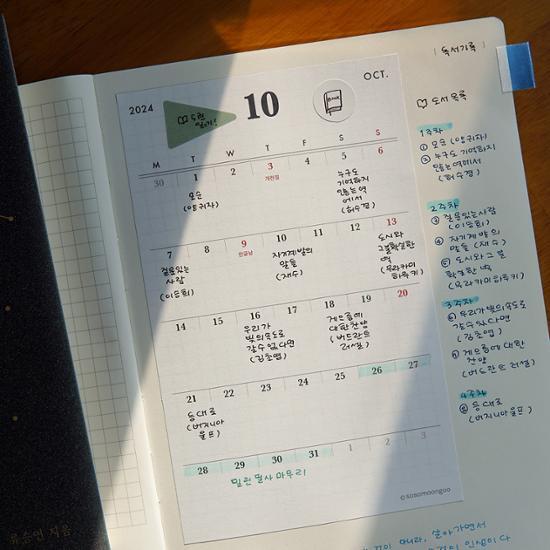 | 독서기록 |
2024
10
OCT.
BOOK
M T W T F S S
30 1 2 3 4 5 6
개천절
모순
(양귀자)
누구도
기억하지
않는 역
에서
(허수경)
7 8 9 10 11 12 13
한글날
(이승희)
자기계발의
말들
(재수)
도시와
그 불확실한
벽
(무라카미
하루키)
14 15 16 17 18 19 20
우리가
빛의 속도로
갈 수 없다면
(김초엽)
게으름에
대한 찬양
(버트란트
러셀)
21 22 23 24 25 26 27
등대로
(버지니아
울프)
28 29 30 31 1 2 3
밀린 필사 마무리
©sosomoongoo
도서 목록
1주차
① 모순 (양귀자)
② 누구도 기억하지
않는 역에서
(허수경)
2주차
(이승희)
④ 자기계발의
말들 (재수)
⑤ 도시와 그 불
확실한 벽
(무라카미 하루키)
3주차
⑥ 우리가 빛의 속도로
갈 수 없다면
(김초엽)
⑦ 게으름에 대한
찬양
(버트란트 러셀)
4주차
⑧ 등대로
(버지니아 울프)
아니라, 살아가면서
인생이다
지음